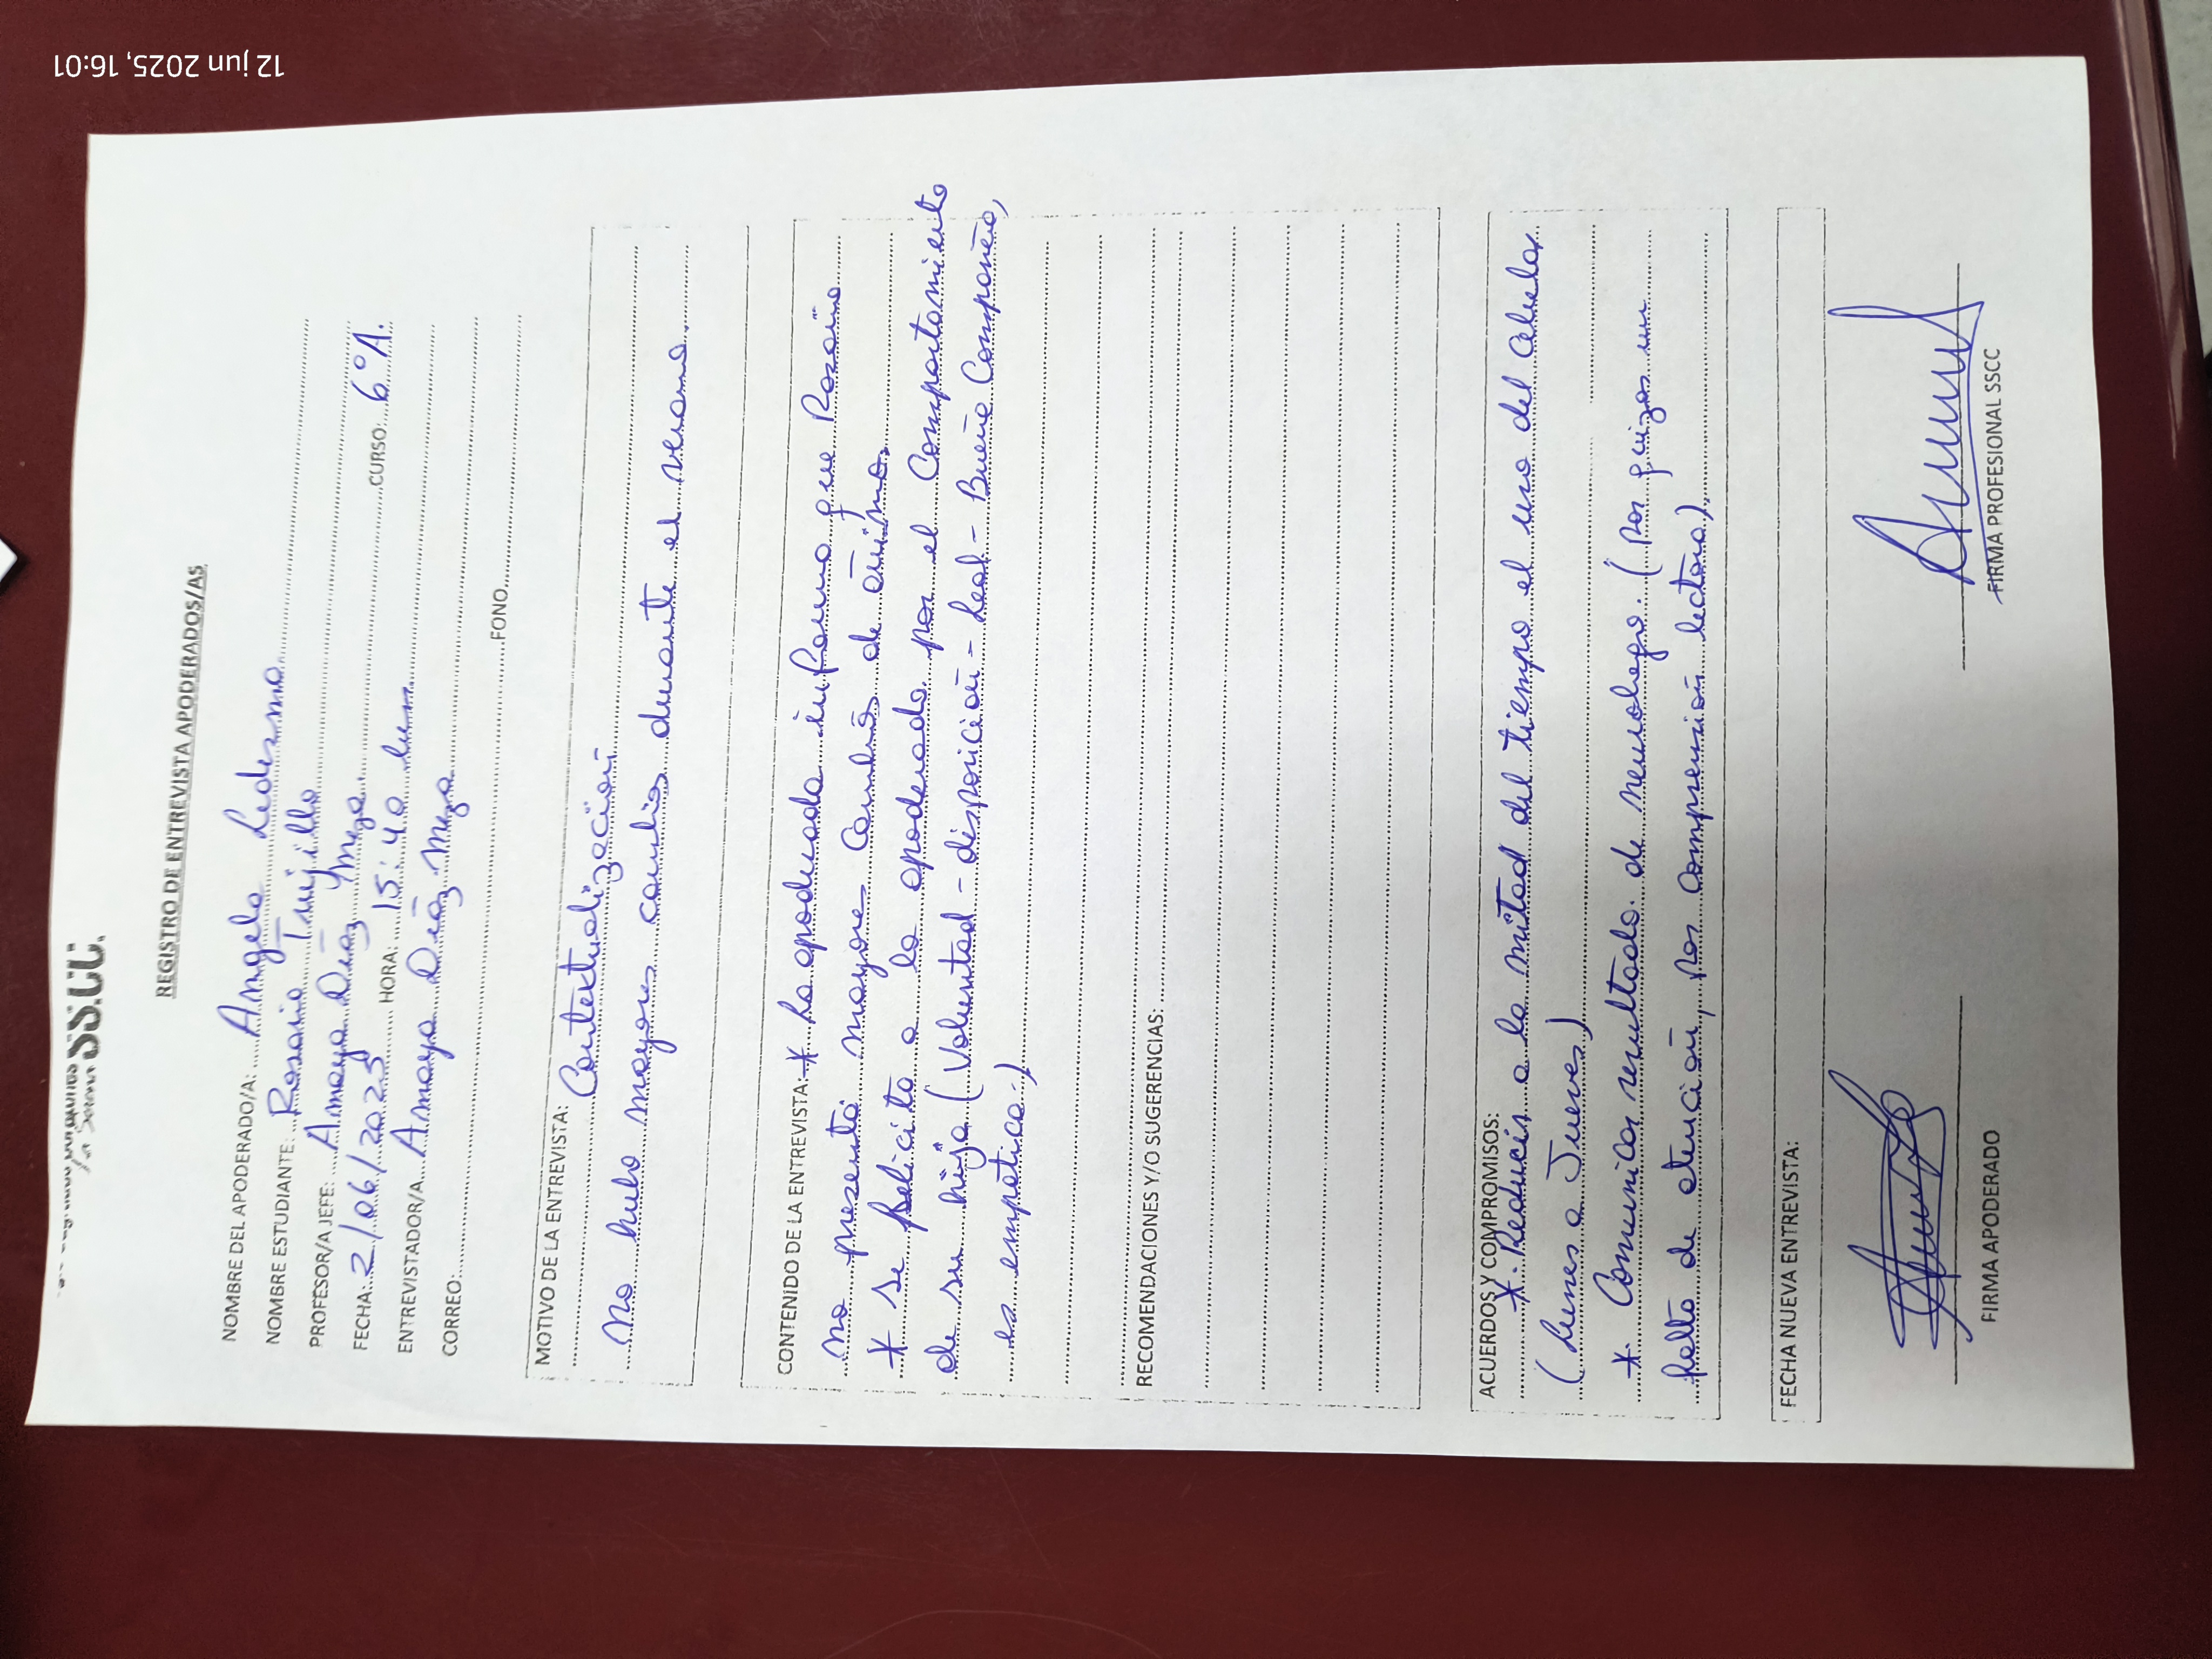 SS.CC.
REGISTRO DE ENTREVISTA APODERADOS/AS
NOMBRE DEL APODERADO/A: Angela Ledezma
NOMBRE ESTUDIANTE: Rosario Trujillo
PROFESOR/A JEFE: Amaya Díaz Meza
FECHA: 2/06/2025 HORA: 15:40 CURSO: 6°A.
ENTREVISTADOR/A. Amaya Díaz Meza
CORREO: FONO
MOTIVO DE LA ENTREVISTA: Contextualización
No hubo mayores cambios durante el verano.
CONTENIDO DE LA ENTREVISTA: * La apoderada informa que Rosario
no presenta mayores cambios de ánimo.
* se felicita a la apoderada por el comportamiento
de su hija (Voluntad - disposición - Leal - Buena Compañera,
es empática.)
RECOMENDACIONES Y/O SUGERENCIAS:
ACUERDOS Y COMPROMISOS:
* Reducir a la mitad del tiempo el uso del celular
(Lunes a Jueves)
* Comunicar resultado de neurologo. (Por quizas un
falta de atención, por comprensión lectora).
FECHA NUEVA ENTREVISTA:
FIRMA APODERADO FIRMA PROFESIONAL SSCC
12 jun 2025, 16:01